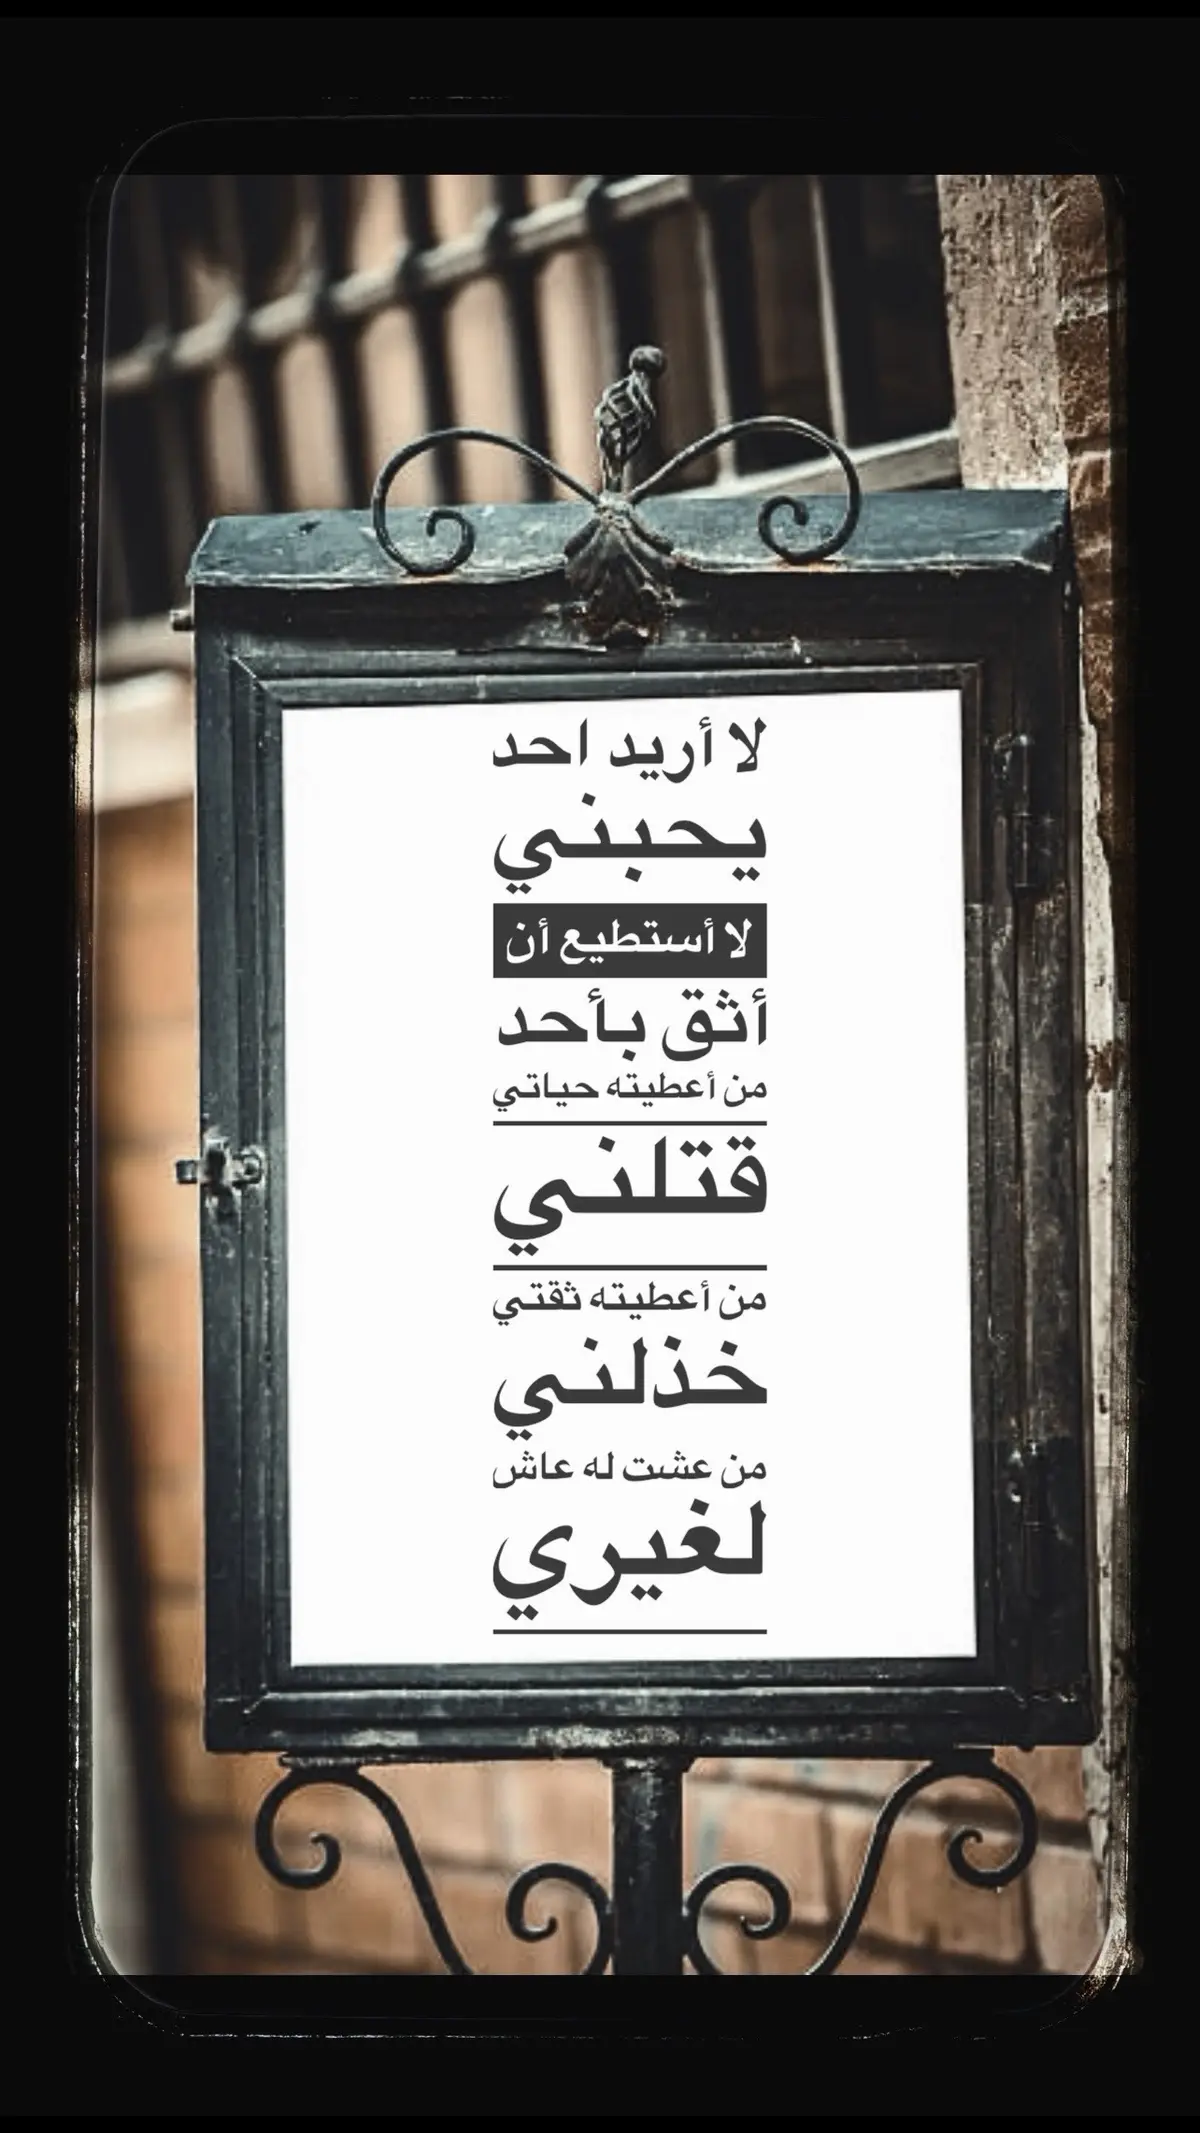 لا أريد احد
يحبني
لا أستطيع أن
أثق بأحد
من أعطيته حياتي
قتلني
من أعطيته ثقتي
خذلني
من عشت له عاش
لغيري